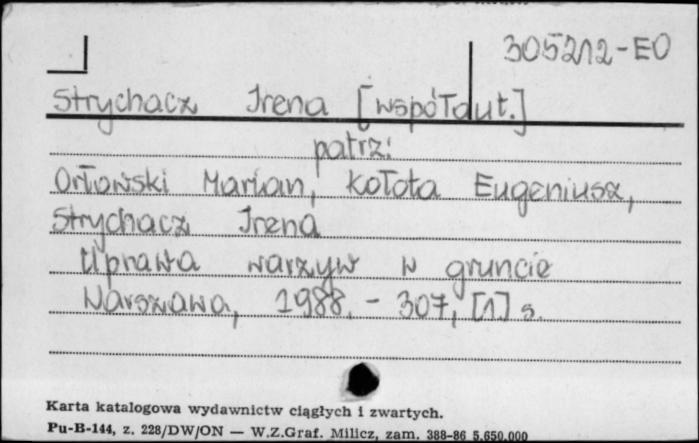 305212-EO
Strychacz Irena [współaut.]
patrz:
Orłowski Marian, Kołota Eugeniusz,
Strychacz Irena
Uprawa warzyw w gruncie
Warszawa, 1988. - 307, [1] s.
Karta katalogowa wydawnictw ciągłych i zwartych.
Pu-B-144, z. 228/DW/ON — W.Z.Graf. Milicz, zam. 388-86 5.650.000